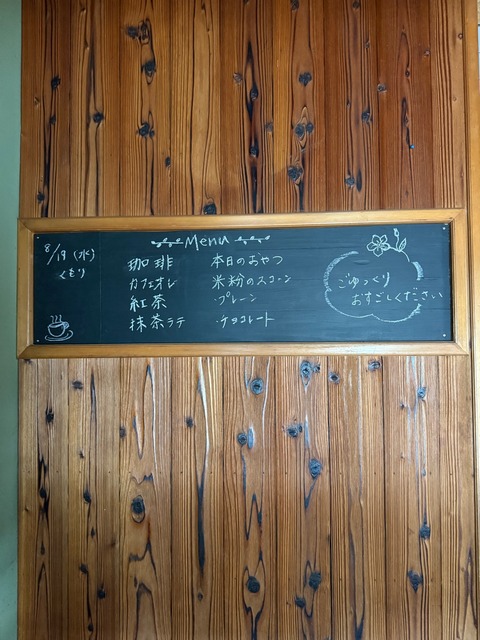 8/19 (水)
くもり
Menu
珈琲
カフェオレ
紅茶
抹茶ラテ
本日のおやつ
米粉のスコーン
・プレーン
・チョコレート
ごゆっくり
おすごしください